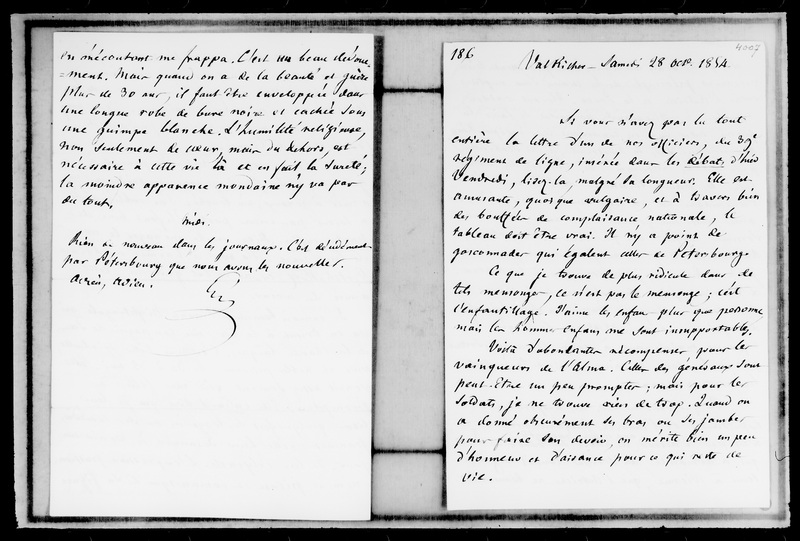 en m'écoutant me frappa. C'est un beau dévoue-
-ment. Mais quand on a de la beauté et guère
plus de 30 ans, il faut être enveloppée dans
une longue robe de bure noire et cachée sous
une guimpe blanche. L'humilité religieuse,
non seulement de cœur, mais du dehors, est
nécessaire à cette vie là et en fait la sureté;
la moindre apparence mondaine n'y va pas
du tout.
midi.
Rien de nouveau dans les journaux. C'est décidément
par Pétersbourg que nous avons les nouvelles.
Adieu, Adieu.
186
4007
Val Richer - Samedi 28 Oct. 1854
Si vous n'avez pas lu tout
entière la lettre d'un de nos officiers, du 39e
régiment de ligne, insérée dans les Débats d'hier
Vendredi, lisez-la, malgré sa longueur. Elle est
amusante, quoique vulgaire, et à travers bien
des bouffées de complaisance nationale, le
tableau doit être vrai. Il n'y a point de
gasconnades qui égalent celles de Pétersbourg.
Ce que je trouve de plus ridicule dans de
tels mensonges, ce n'est pas le mensonge; c'est
l'enfantillage. J'aime les enfans plus que personne,
mais les hommes enfans me sont insupportables.
Voilà d'abondantes récompenses pour les
vainqueurs de l'Alma. Celles des généraux sont
peut-être un peu promptes; mais pour les
soldats, je ne trouve rien de trop. Quand on
a donné obscurément ses bras ou ses jambes
pour faire son devoir, on mérite bien un peu
d'honneur et d'aisance pour ce qui reste de
vie.